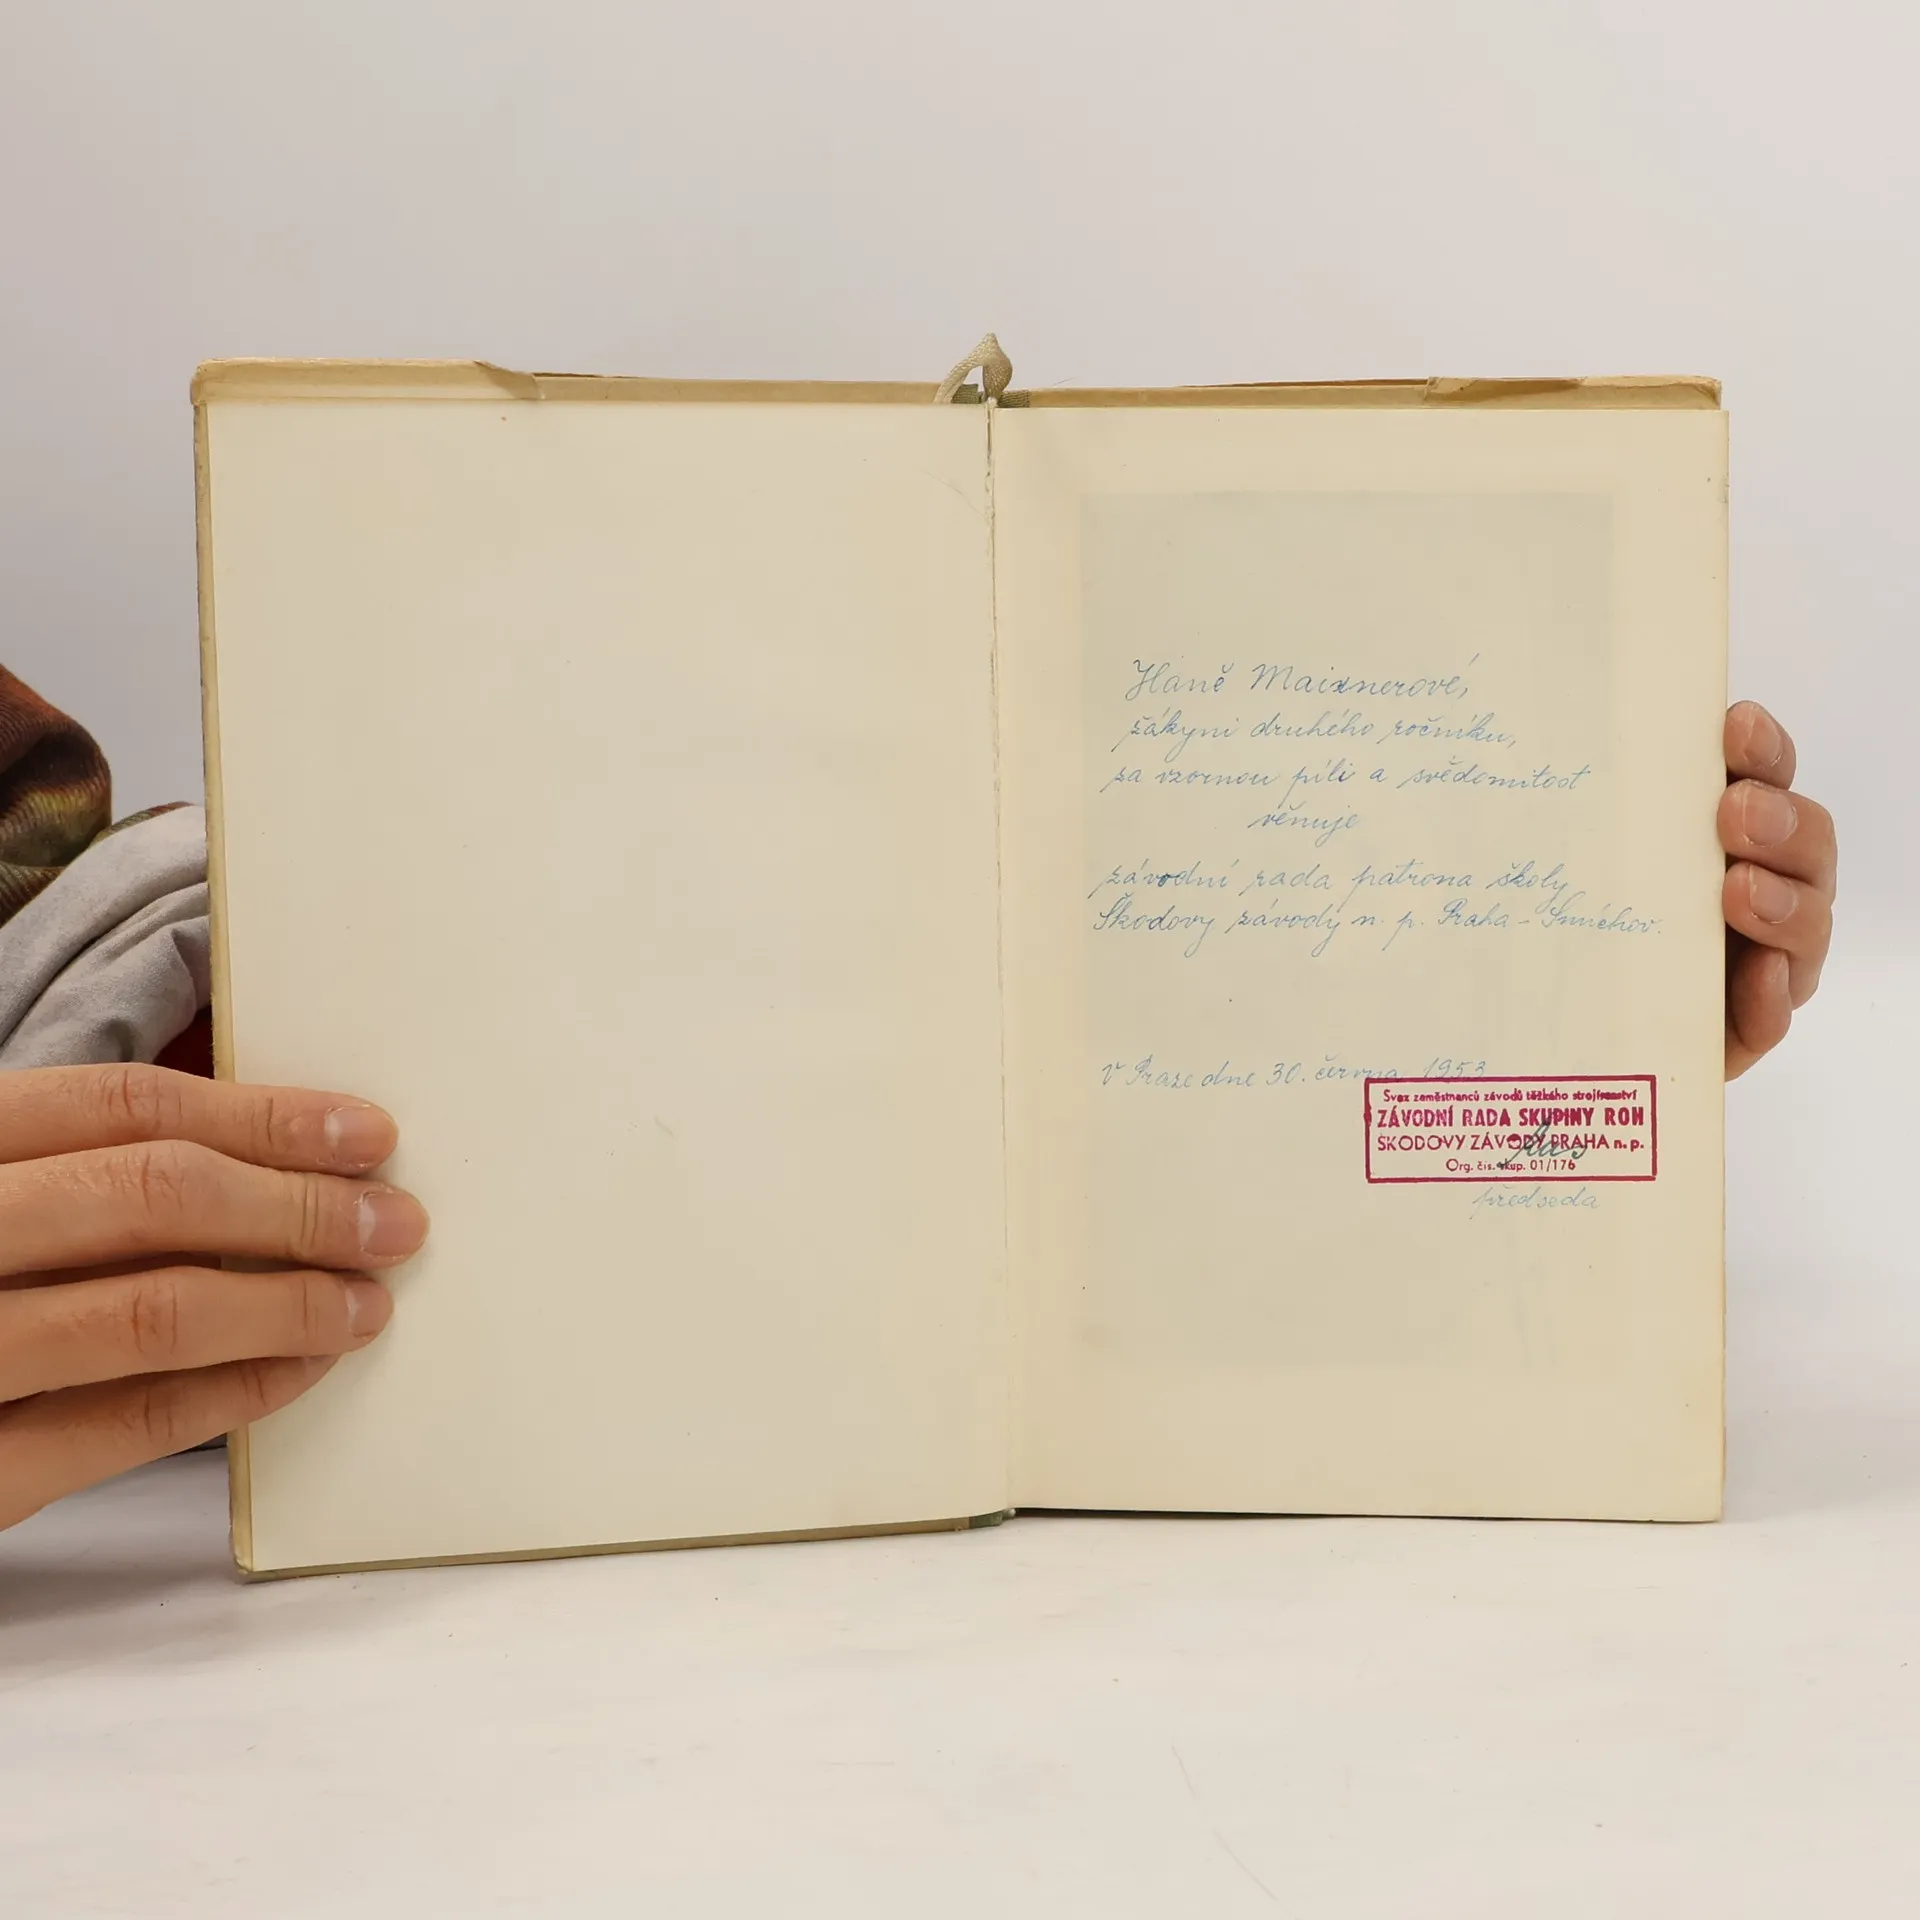 Haně Maixnerové,
žákyni druhého ročníku,
za vzornou píli a svědomitost
věnuje
závodní rada patrona školy
Škodovy závody n. p. Praha - Smíchov.
V Praze dne 30. června 1953
Svaz zaměstnanců závodů těžkého strojírenství
ZÁVODNÍ RADA SKUPINY ROH
ŠKODOVY ZÁVODY PRAHA n. p.
Org. čís. skup. 01/176
předseda